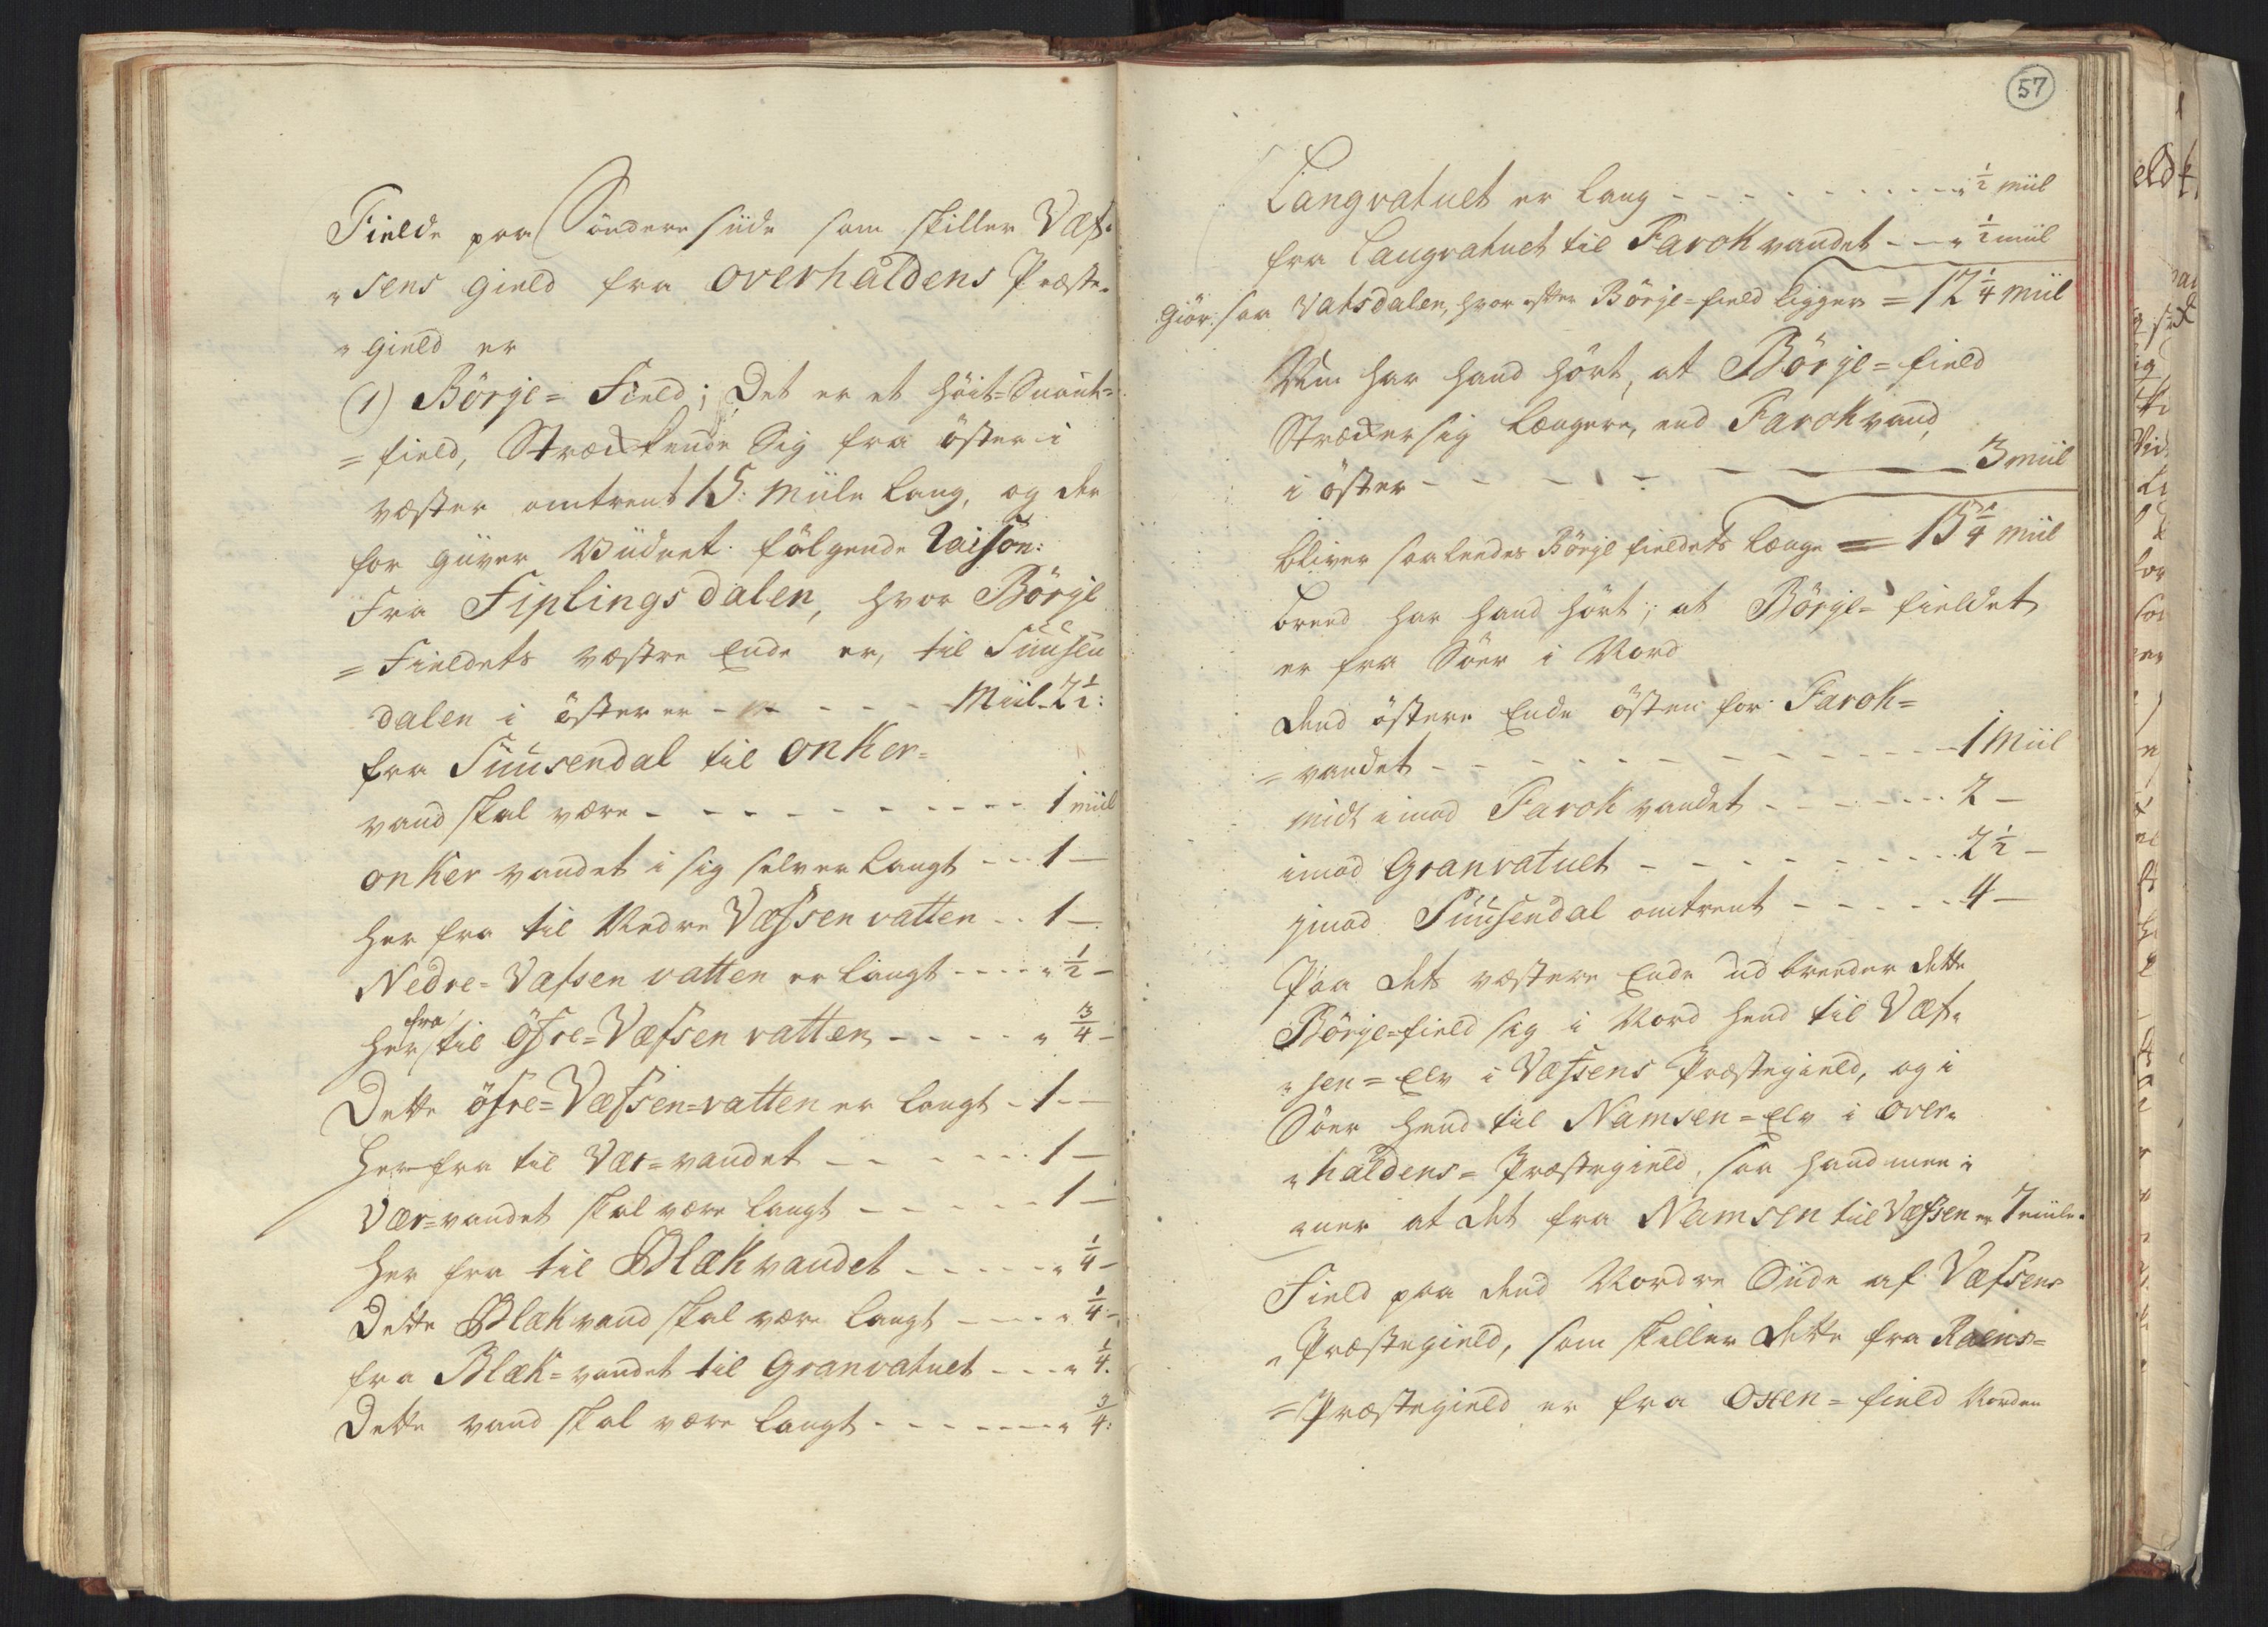 Fielde paa Söndere side som skiller Væf-
"sens gield fra Overhaldens Præste-
"gield er
(1) Börge= Field; Det er et höit=Snout=
=field, Strækkende Sig fra öster i
væster omtrent 15: Miile lang, og der
for giver Vidnet fölgende raison:
Fra Fiplingsdalen, hvor Börge
=Fieldets væstre Ende er, til Suusen
dalen i öster er - - - - Miil 2½:
fra Suusendal til Onker=
vand skal være - - - - - - - - 1 miil
Onker vandet i sig selv er langt - - 1 —
her fra til Nedre Væfsen vatten - - 1 —
Nedre=Væfsen vatten er langt - - - - " ½ —
her fra til öfre=Væfsen vatten - - - - " ¾ —
Dette öfre=Væfsen=vatten er langt - 1 - —
Her fra til Vær=vandet - - - - - 1 —
Vær=vandet skal være langt - - - - - 1 —
her fra til Blækvandet - - - - - " ¼ —
Dette Blækvand skal være langt - - - " ¼ —
fra Blæk=vandet til Granvatnet - - - " ¼.
Dette vand skal være langt - - - - - - " ¾:
57
Langvatnet er lang - - - - - - - - - - " ½ miil
fra Langvatnet til Farokvandet - - - " ½ miil
Giör saa Vatsdalen, hvor efter Börge=field ligger = 12¼ Miil
Nu har hand hört, at Börge=field
Strækker sig længere, end Farokvand
i öster - - - - - - - - - 3 miil
bliver saaleedes Börge fieldets længe = 15¼ miil
breed har hand hört, at Börge=fieldet
er fra Söer i Nord
Dend östere Ende östen for Farok=
=vandet - - - - - - - - - - - 1 Miil
midt imod Farok vandet - - - - - - - 2 —
imod Granvatnet - - - - - - - - - 2½ —
imod Suusendal omtrent - - - - - 4 —
Paa dets væstere Ende udbreeder dette
Börge=field sig i Nord hend til Væf-
"sen=Elv i Væfsens Præstegield, og i
Söer hend til Namsen=Elv i Over-
"haldens=Præstegield, saa hand mee-
"ner at det fra Namsen til Væfsen er 7 miile.
Field paa dend Nordre Side af Væfsens
"Præstegield, som skiller dette fra Raens=
=Præstegield er fra Oxen=field Norden